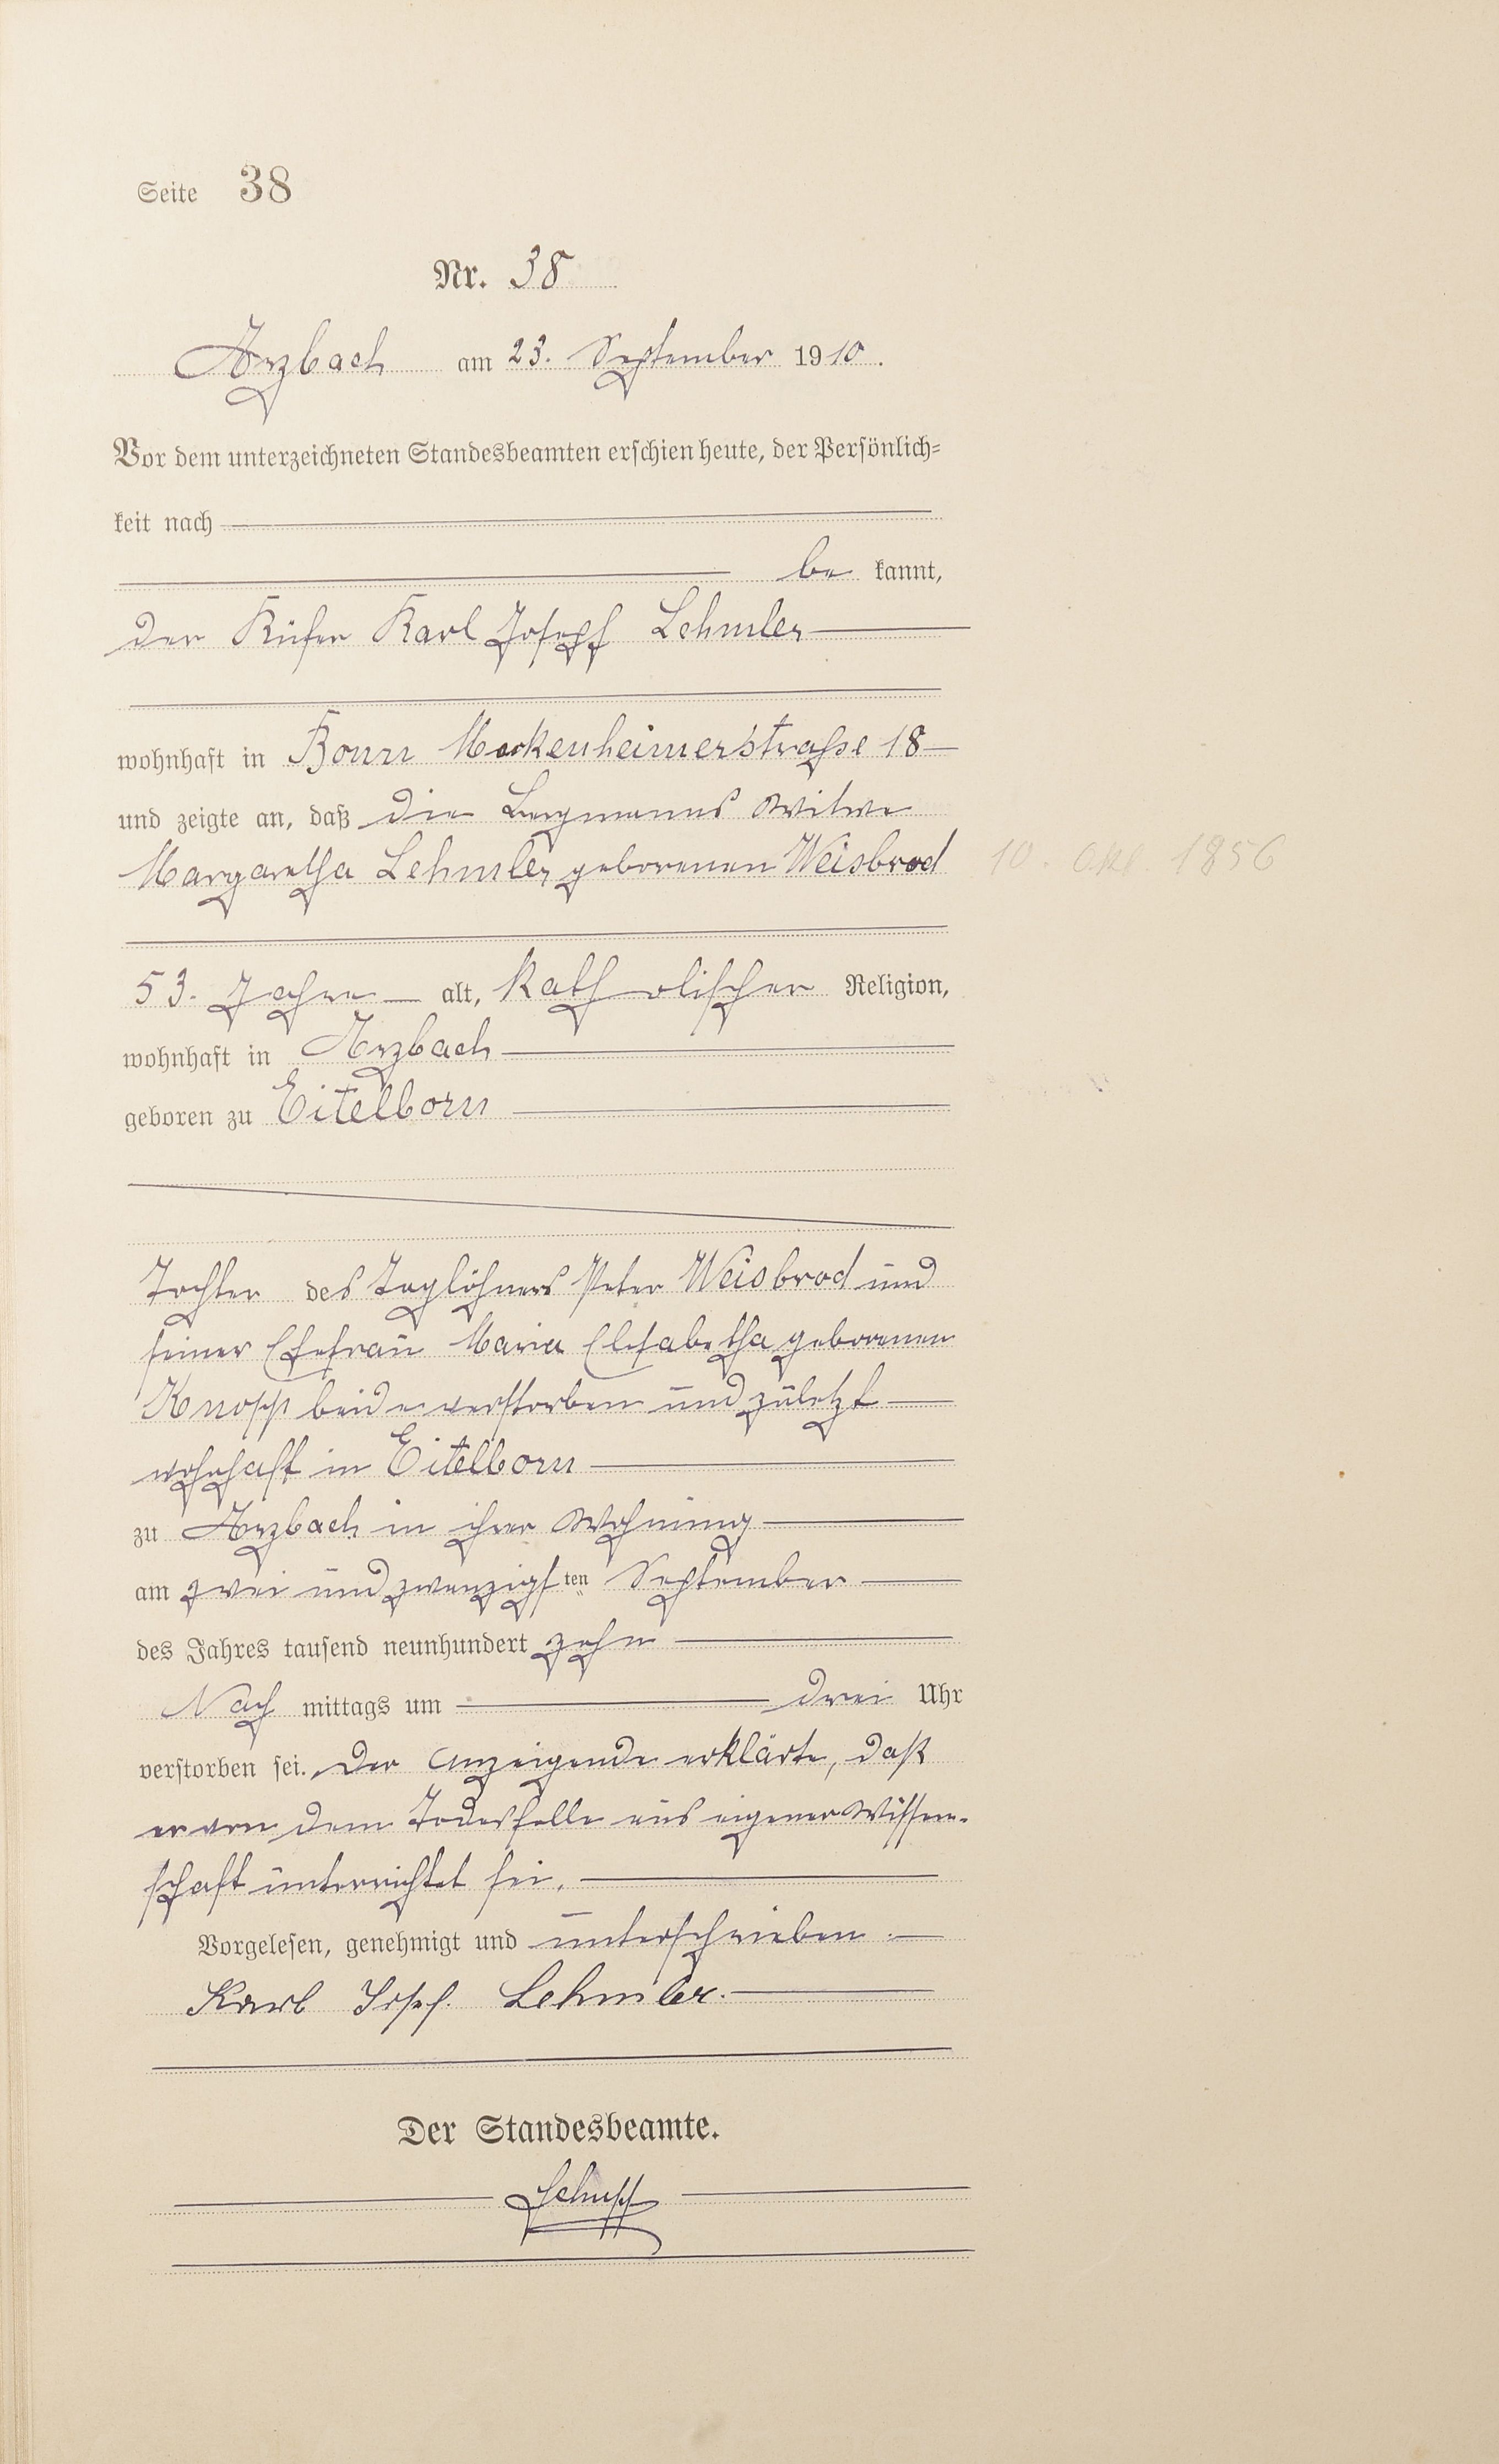 Seite 38
Nr. 38
Arzbach am 23. September 1910.
Vor dem unterzeichneten Standesbeamten erschien heute, der Persönlich-
keit nach
be kannt,
der Küfer Karl Josepf Lehmler
wohnhaft in Bonn Meckenheimerstraße 18
und zeigte an, daß die Bergmanns Witwe
Margaretha Lehmler geborenen Weisbrod 10. Okt. 1856
53. Jahre alt, katholischer Religion,
wohnhaft in Arzbach
geboren zu Eitelborn
Tochter des Taglöhners Peter Weisbrod und
seiner Ehefrau Maria Elisabetha geborenen
Knopp beide verstorben und zuletzt
wohnhaft in Eitelborn
zu Arzbach in ihrer Wohnung
am zwei und zwanzigsten September
des Jahres tausend neunhundert zehn
Nach mittags um drei Uhr
verstorben sei. Der Anzeigende erklärte, daß
er von dem Todesfalle aus eigener Wissen-
schaft unterrichtet sei.
Vorgelesen, genehmigt und unterschrieben.
Karl Josef. Lehmler.
Der Standesbeamte.